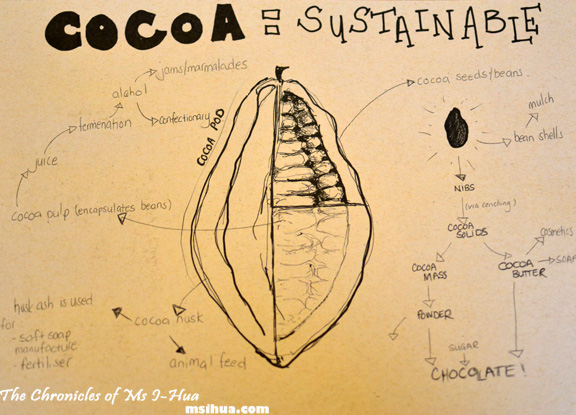 COCOA = SUSTAINABLE
jams/marmalades
alcohol
confectionary
fermenation
juice
cocoa pulp (encapsulates beans)
COCOA POD
cocoa seeds/beans.
mulch
bean shells
NIBS
(via conching)
COCOA SOLIDS
COCOA MASS
COCOA BUTTER
cosmetics
SOAP
POWDER
SUGAR
CHOCOLATE!
cocoa husk
animal feed
husk ash is used
for
- soft soap
manufacture
- fertiliser
The Chronicles of Ms I-Hua
msihua.com